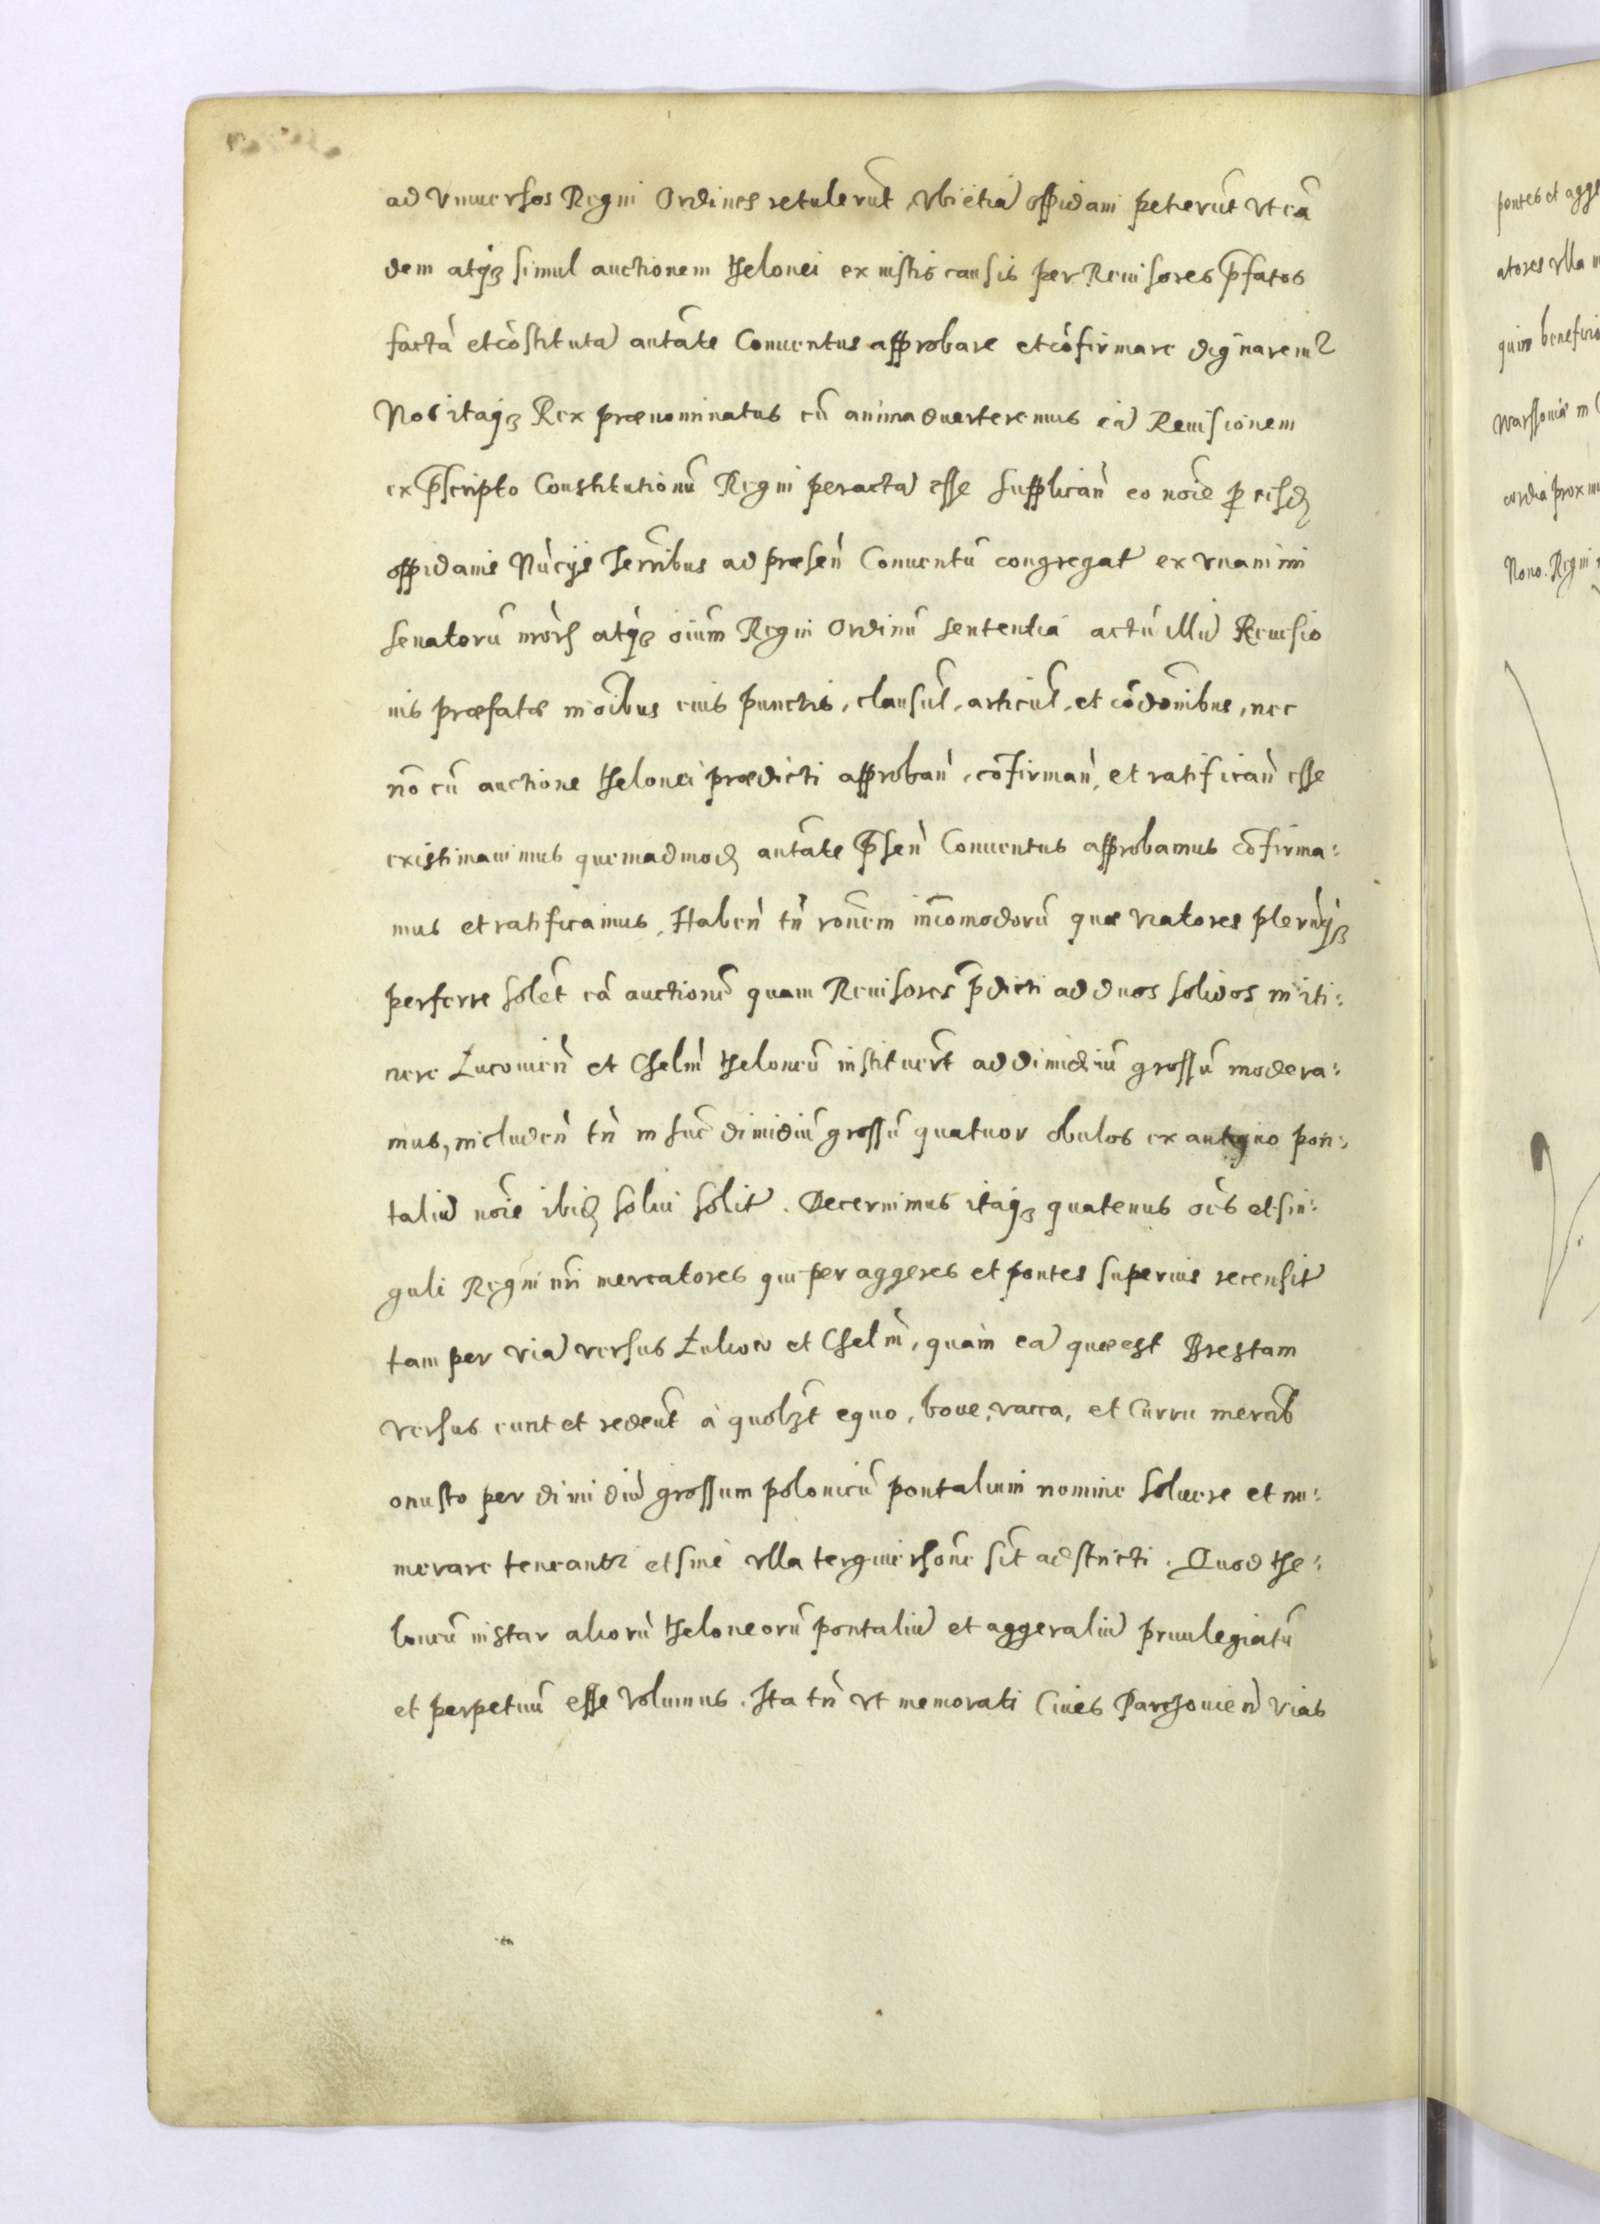 ad vniuersos Regni Ordines retulerūt, vbi etiā oppidani petierūt vt eā
dem atq₃ simul auctionem thelonei ex iustis causis per Reuisores p̄fatos
factā et cōstitutā autāte Conuentus approbare et cōfirmare dignaremur
Nos itaq₃ Rex prænominatus cū animaduerteremus eā Reuisionem
ex p̄scripto Constitutionū Regni peractā esse supplicaǹ eo nōie ꝓ eisd̄
oppidanis Nūcijs Terr̄ibus ad præseǹ Conuentū congregat̄ ex vnanimi
senatorū nr̄or̄ atq₃ oīum Regni Ordinū sententia actū illū Reuisio
nis præfatæ in oībus eius punctis, clausul̄, articul̄, et cōdōnibus, nec
nō cū auctione thelonei prædicti approbaǹ, cōfirmaǹ, et ratificaǹ esse
existimauimus quemadmod̄ autāte p̄seǹ Conuentus approbamus cōfirma:
mus et ratificamus. Habeǹ tǹ rōnem incōmodorū quæ viatores pleruq₃
perferre solēt eā auctionē quam Reuisores p̄dicti ad duos solidos in iti:
nere Łucouieǹ et Chelm̀ theloneū instituer̄t ad dimidiū grossū modera:
mus, includeǹ tǹ in hūc dimidiū grossū quatuor obulos ex antiquo pon:
taliū nōie ibid̄ solui solit̄. Decernimus itaq₃ quatenus oēs et sin:
guli Regni nr̄i mercatores qui per aggeres et pontes superius recensit̄
tam per viā versus Łukow et Chelm̀, quàm eā quæ est Brestam
versus eunt et redeūt à quolʒt equo, boue, vacca, et Curru mercib̄
onusto per dimidiū grossum polonicū pontalium nomine soluere et nu:
merare teneantur et sine vlla tergiuersōne sīt adstricti. Quod the:
loneū instar aliorū theloneorū pontaliū et aggeraliū priuilegiatū
et perpetuū esse volumus. Ita tǹ vt memorati Ciues Parczouieǹ vias